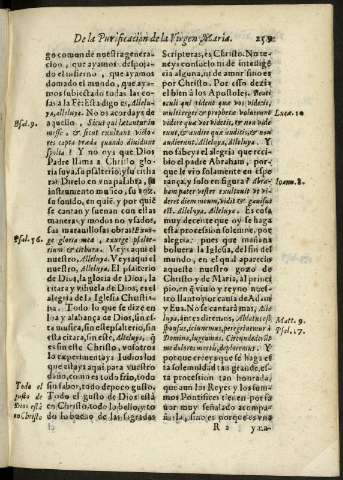 De la Purificacion de la Virgen Maria. 259.
go comun de nuestra genera-
cion, que ayamos despoja-
do el infierno, que ayamos
domado el mundo, que ayamos
subiectado todas las co-
sas a la Fè: Esta digo es, Allelu-
ya, alleluya. No os acordays de
Psal. 9.
aquello, Sicut qui lætantur in
messe, & sicut exultant victo-
res capta præda quando diuidunt
spolia? Y no oys que Dios
Padre llama a Christo glo-
ria suya, su psalterio, y su citha
ra? Direlo en vna palabra, su
instrumento musico, su voz,
su sonido, en quiẽ, y por quiẽ
se cantan y suenan con estas
maneras y modos no vsados,
sus marauillosas obras? Exur-
Psal. 56.
ge gloria mea, exurge psalte-
rium & cithara. Veys aqui el
nuestro, Alleluya. Veys aqui el
nuestro, Alleluya. El psalterio
de Dios, la gloria de Dios, la
citara y vihuela de Dios, es el
alegria de la Iglesia Christia-
na. Todo lo que se dize en
loa y alabança de Dios, sin es-
ta musica, sin este psalterio, sin
esta citara, sin este, Alleluya, ò
sin este Christo, vosotros
lo experimentays Iudios los
que estays aqui para vuestro
daño, como es todo frio, todo
sin sabor, todo de poco gusto.
Todo el
gusto de
Dios està
en Christo
Todo el gusto de Dios està
en Christo, todo lo bello, y to-
do lo bueno de las sagradas
Scripturas, es Christo. No te-
neys con solacion i de intelli-
gencia alguna, ni de amor sino es
por Christo. Por esso dezia
el bien a los Apostoles. Beati
oculi qui vident quæ vos videtis,
Lucæ. 10
multi enim reges & prophetæ voluerunt
videre quæ vos videtis, & non vide-
runt, & audire quæ auditis, & non
audierunt. Alleluya, Alleluya. Y
no sabeys el alegria que reci-
bio el padre Abraham, por-
que le vio solamente en espe-
rança, y solo en figura? Abra-
Ioann. 8.
ham pater vester exultauit vt vi-
deret diem meum, vidit & gauisus
est. Alleluya, Alleluya. Es cosa
muy decente que oy se haga
esta procession solenne, por
alegria; pues que mañana
boluera la Iglesia, de la fin del
mundo, en el qual aparecio
aqueste nuestro gozo de
Christo y de Maria, al princi-
pio, en q̃ viuio y reyno nues-
tro llanto por causa de Adam
y Eua. No se cantarà mas; Alle-
luya, antes diremos, Ablatus est
Matt. 9.
sponsus, ieiunemus, peregrinamur à
Psal. 17.
Domino, lugeamus. Circundederunt
me dolores mortis, deploremus. Y
porque creays que se haga es-
ta solemnidad tan grande, es-
ta procession tan honrada,
que aun los Reyes y los sum-
mos Pontifices tienen en por
fauor muy señalado acompa-
ñarla, sino es, porque no es
R 2 yra-